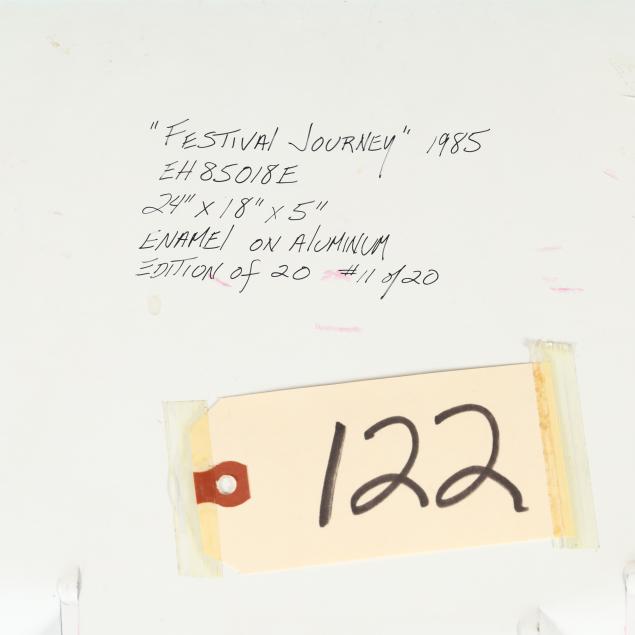 "Festival Journey" 1985
EH85018E
24" x 18" x 5"
ENAMEl ON AlUMINUM
EDITION of 20 #11 of 20
122